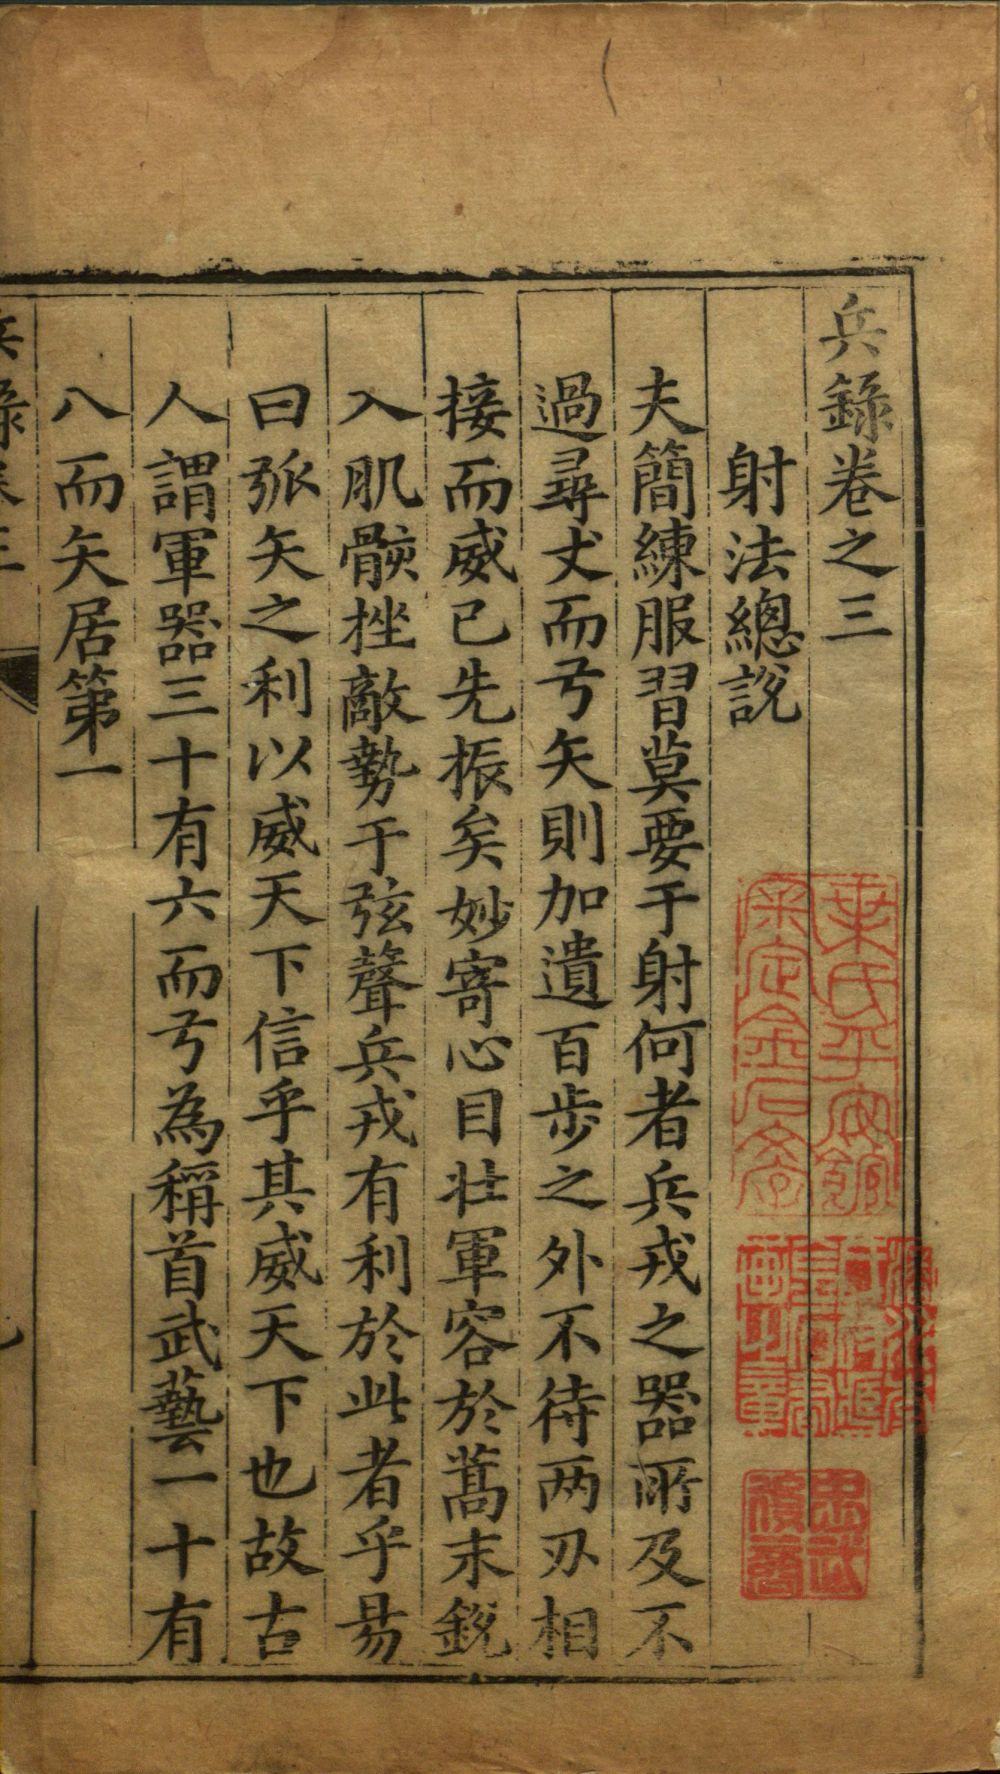 兵錄卷之三
射法總說
夫簡練服習莫要于射何者兵戎之器所及不
過尋丈而弓矢則加遺百步之外不待两刃相
接而威已先振矣妙寄心目壯軍容於蒿末銳
入肌骸挫敵勢于弦聲兵戎有利於此者乎易
曰弧矢之利以威天下信乎其威天下也故古
人謂軍器三十有六而弓為稱首武藝一十有
八而矢居第一
葉氏平安館
審定金石
忠武
後裔